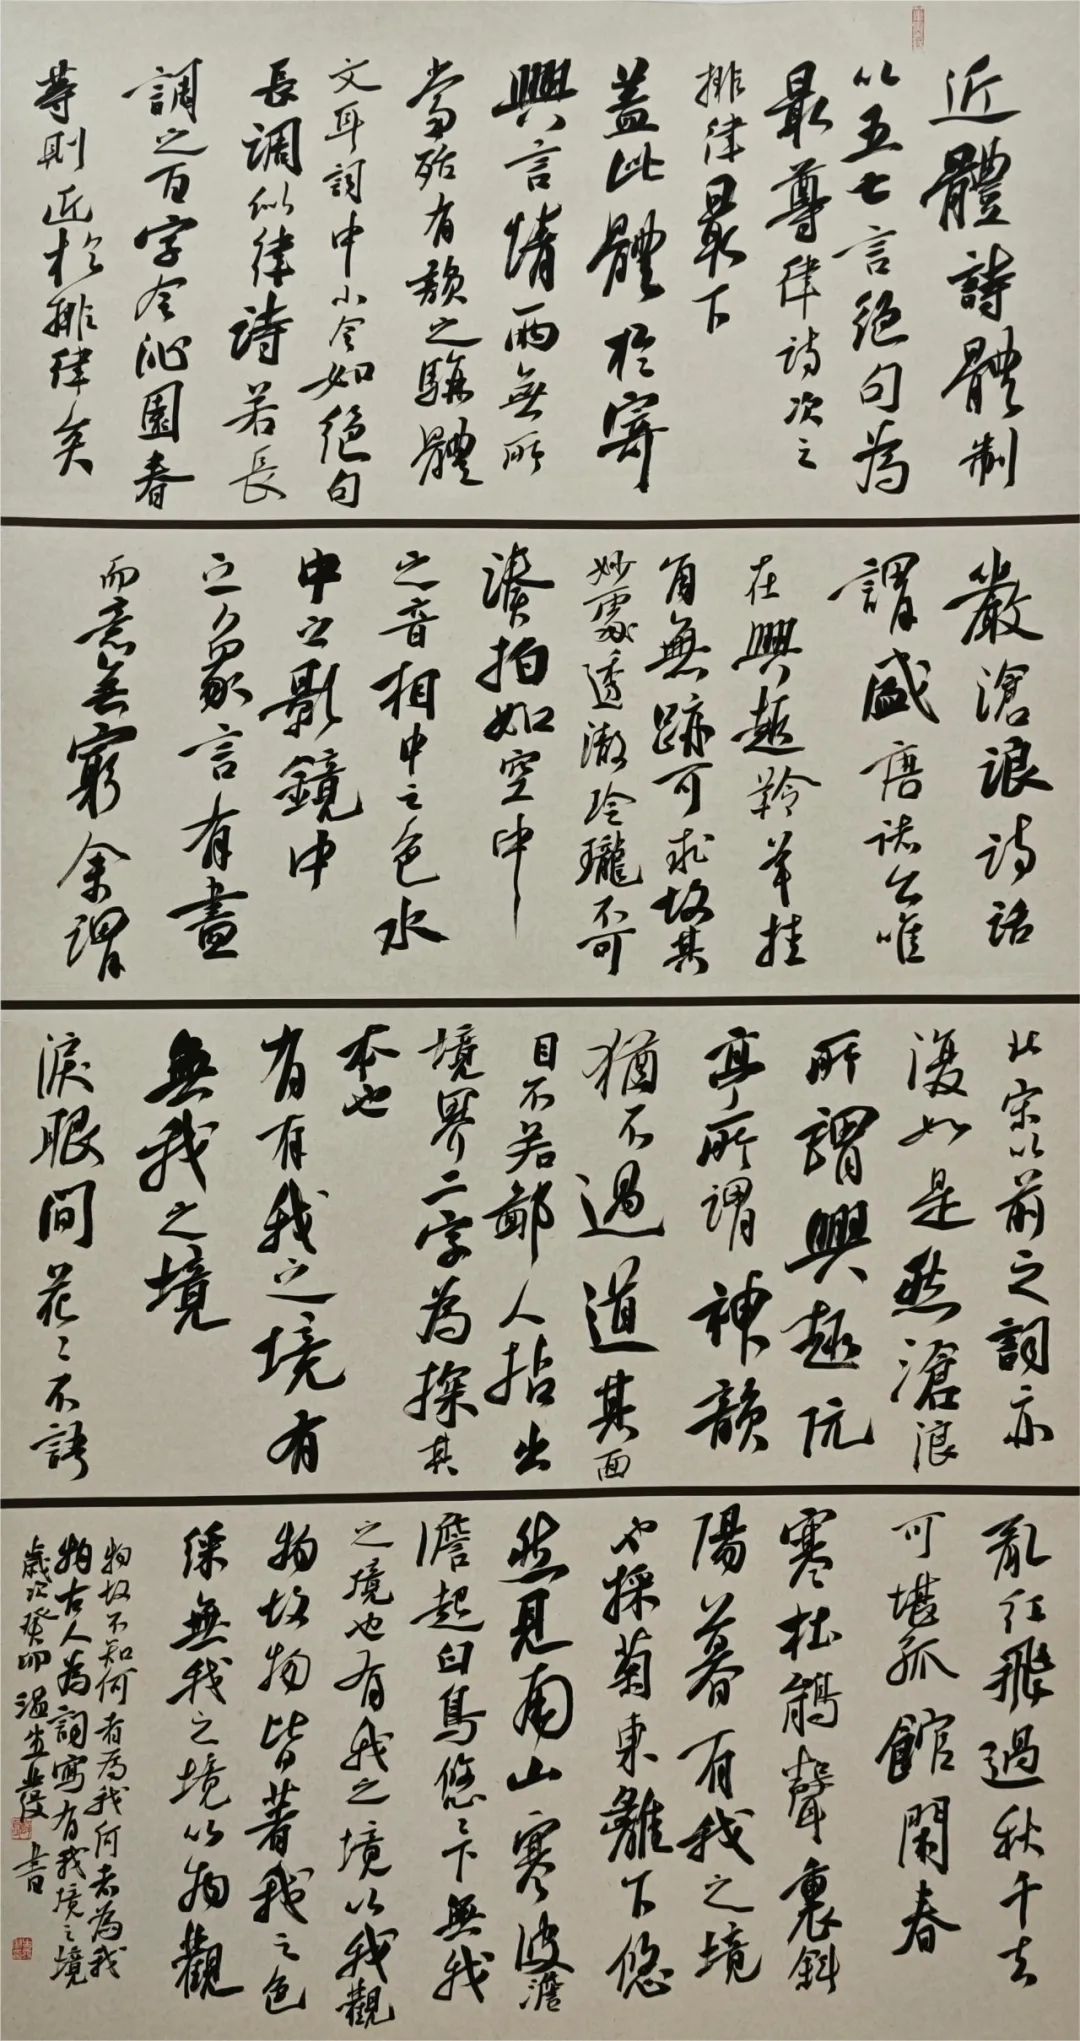 近體詩體制
以五七言絕句為
最尊律詩次之
排律最下
蓋此體於寄
興言情兩無所
當殆有韻之駢體
文耳詞中小令如絕句
長調似律詩若長
調之百字令沁園春
等則近於排律矣
嚴滄浪詩話
謂盛唐諸公唯
在興趣羚羊挂
角無跡可求故其
妙處透澈玲瓏不可
湊拍如空中
之音相中之色水
中之影鏡中
之象言有盡
而意無窮余謂
北宋以前之詞亦
復如是然滄浪
所謂興趣阮
亭所謂神韻
猶不過道其面
目不若鄙人拈出
境界二字為探其
本也
有有我之境有
無我之境
淚眼問花花不語
亂紅飛過秋千去
可堪孤館閑春
寒杜鵑聲裏斜
陽暮有我之境
也採菊東籬下悠
然見南山寒波澹
澹起白鳥悠悠下無我
之境也有我之境以我觀
物故物皆著我之色
綵無我之境以物觀
物故不知何者為我何者為
物古人為詞寫有我境之境
歲次癸卯溫
書